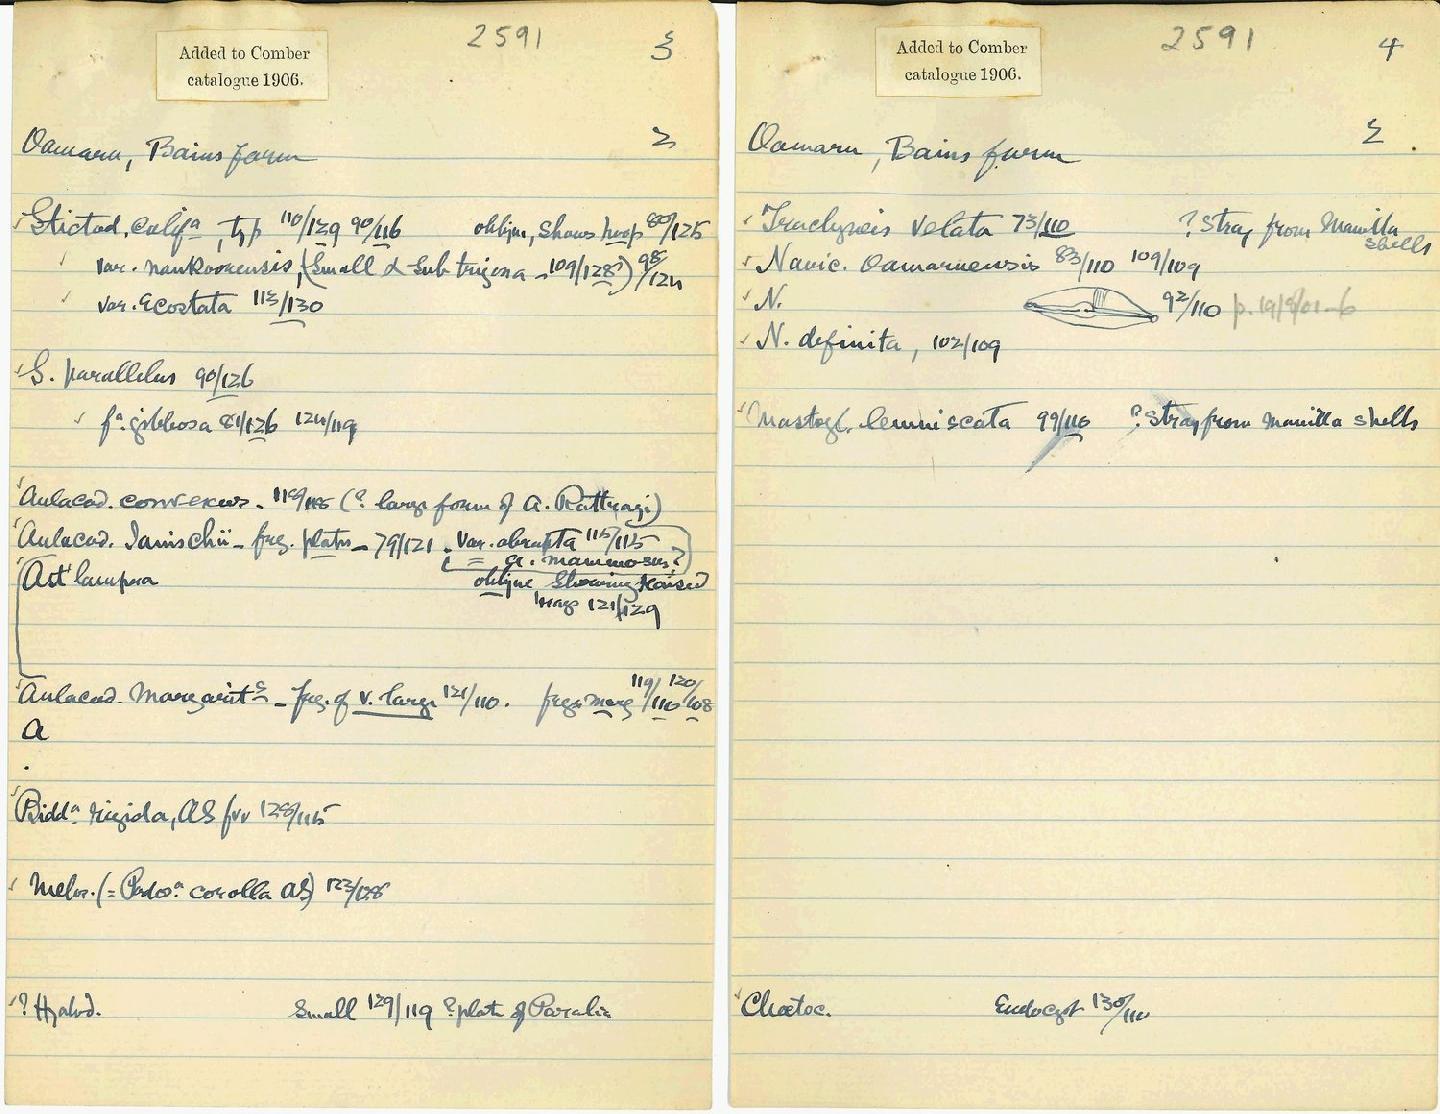 Added to Comber
catalogue 1906.
2591
3
Oamaru, Bains farm
2
Stictod. Califª, typ 110/129 90/116 oblique, shows hoop 80/125
var. nankoorensis (small & subtrigona - 109/128) 98/124
var. ecostata 113/130
S. parallelus 90/126
fª. gibbosa 81/126 124/119
Aulacod. convexus - (? large form of A. Rattrayi)
Aulacod. Janischii - frg. plats - 79/121 - var. abrupta 115/125
= A. mammosus?
Act lampra oblique showing raised
marg 121/129
Aulacod. Margaritª - frg. of v. large 121/110. frgs marg 119/110 120/108
A
.
Biddª rigida, AS frv 128/115
Melos. (= Podosª corolla AS) 122/128
? Hyalod. Small 129/119 ? plate of Paralia
Added to Comber
catalogue 1906.
2591
4
Oamaru, Bains farm
2
Trachyneis velata 73/110 ? stray from Manilla
shells
Navic. Oamaruensis 83/110 109/109
N. 92/110 p. 19/9/01-6
N. definita, 102/109
Mastogl. lemniscata 99/110 ? stray from Manilla shells
Chaetoc. Endocyst 130/110